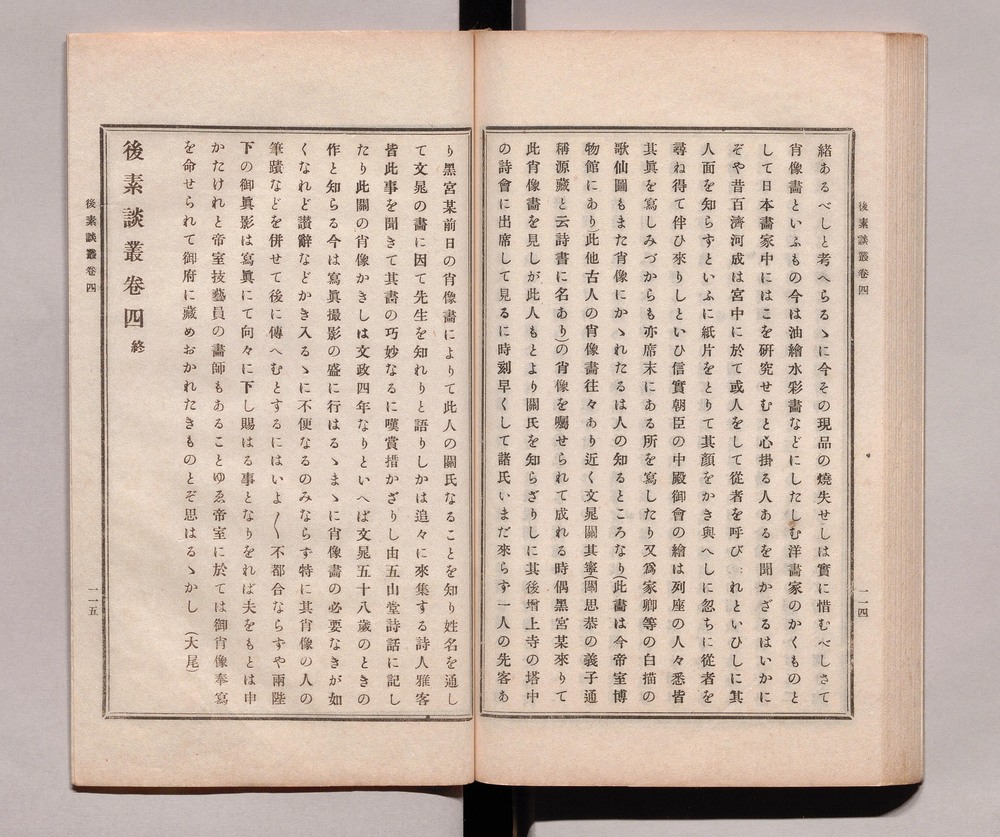 後素談叢卷四
一一四
緖あるべしと考へらるゝに今その現品の燒失せしは實に惜むべしさて
肖像畫といふもの今は油繪水彩畫などにしたしむ洋畫家のかくものと
して日本畫家中にはこを硏究せむと心掛る人あるを聞かざるはいかに
ぞや昔百濟河成は宮中に於て或人をして從者を呼び れといひしに其
人面を知らすといふに紙片をとりて其顏をかき與へしに忽ちに從者を
尋ね得て伴ひ來りしといひ信實朝臣の中殿御會の繪は列座の人々悉皆
其眞を寫しみづからも亦席末にある所を寫したり又爲家卿等の白描の
歌仙圖もまた肖像にかゝれたるは人の知るところなり(此畫は今帝室博
物館にあり)此他古人の肖像畫往々あり近く文晁關其寧(關思恭の義子通
稱源藏と云詩書に名あり)の肖像を囑せられて成れる時偶黑宮某來りて
此肖像畫を見しが此人もとより關氏を知らざりしに其後增上寺の塔中
の詩會に出席して見るに時刻早くして諸氏いまだ來らす一人の先客あ
り黑宮某前日の肖像畫によりて此人の關氏なることを知り姓名を通し
て文晁の畫に因て先生を知れりと語りしかは追々に來集する詩人雅客
皆此事を聞きて其書の巧妙なるに嘆賞措かざりし由五山堂詩話に記し
たり此關の肖像かきしは文政四年なりといへば文晁五十八歲のときの
作と知らる今は寫眞撮影の盛に行はるゝまゝに肖像畫の必要なきが如
くなれど讃辭などかき入るゝに不便なるのみならず特に其肖像の人の
筆蹟などを併せて後に傳へむとするにはいよ〱不都合ならずや兩陛
下の御眞影は寫眞にて向々に下し賜はる事となりをれば夫をもとは申
かたけれと帝室技藝員の畫師もあることゆゑ帝室に於ては御肖像奉寫
を命せられて御府に藏めおかれたきものとぞ思はるゝかし (大尾)
後素談叢卷四 終
後素談叢卷四
一一五